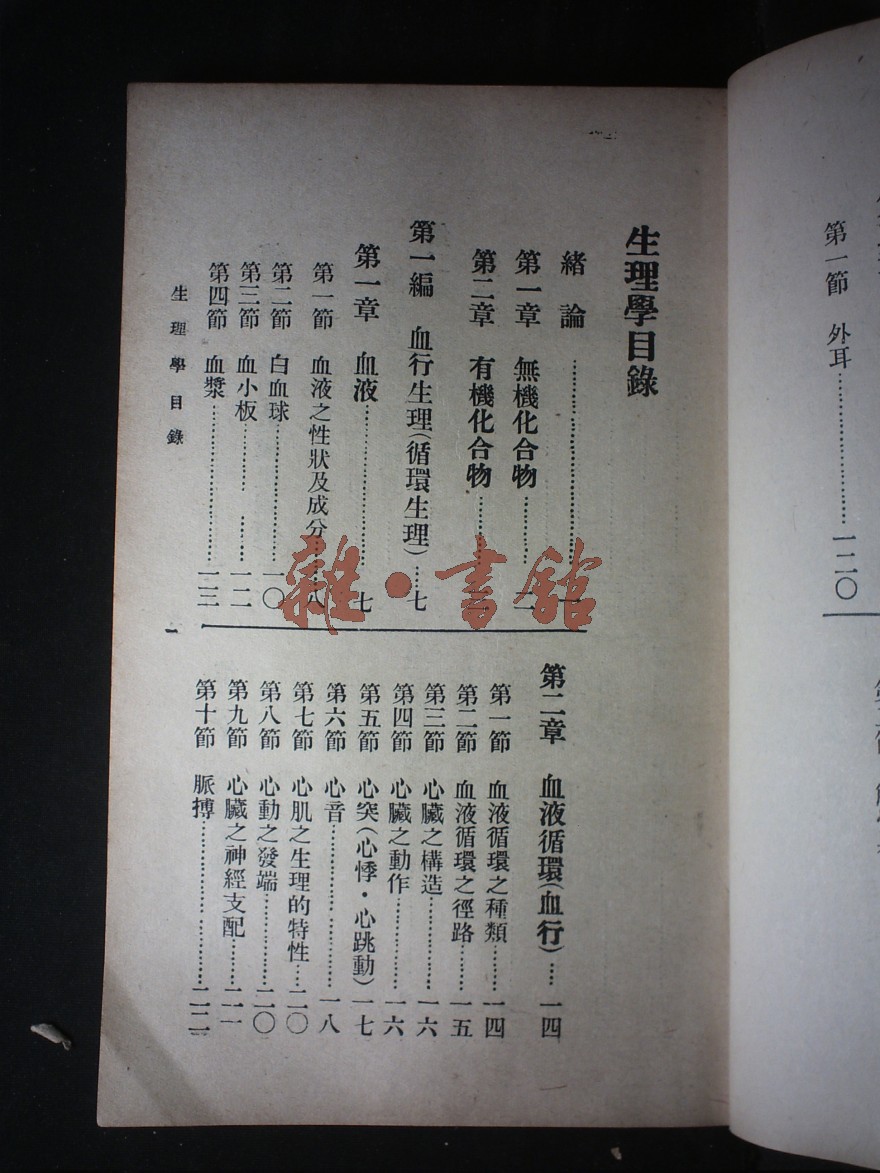 生理學目錄
緒論……一
第一章 無機化合物……二
第二章 有機化合物……
第一編 血行生理(循環生理)……七
第一章 血液……七
第一節 血液之性狀及成分……八
第二節 白血球……一〇
第三節 血小板……一二
第四節 血漿……一三
第二章 血液循環(血行)……一四
第一節 血液循環之種類……一四
第二節 血液循環之徑路……一五
第三節 心臟之構造……一六
第四節 心臟之動作……一六
第五節 心突(心悸・心跳動)一七
第六節 心音……一八
第七節 心肌之生理的特性……二〇
第八節 心動之發端……二〇
第九節 心臟之神經支配……二一
第十節 脈搏……二二
生理學目錄
一
雜・書館
第一節 外耳……一二〇